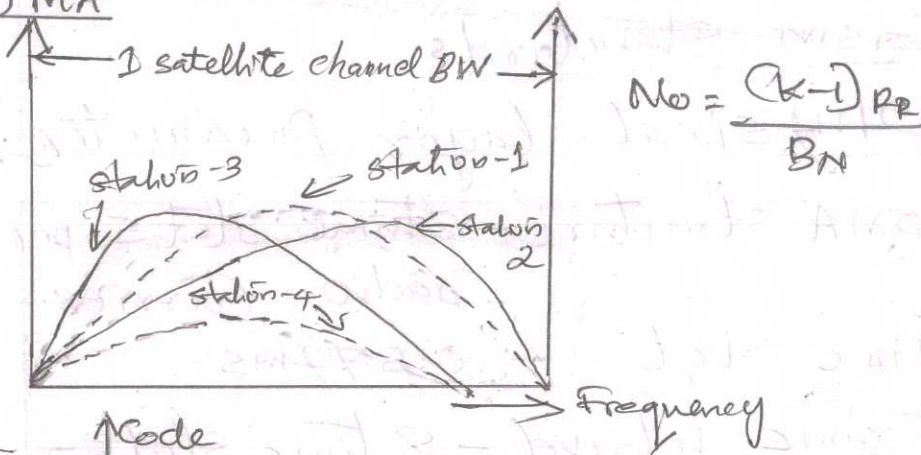 MA
1 satellite channel BW
No = (K-1) PR / BN
station-3
station-1
station
2
station-4
Frequency
Code